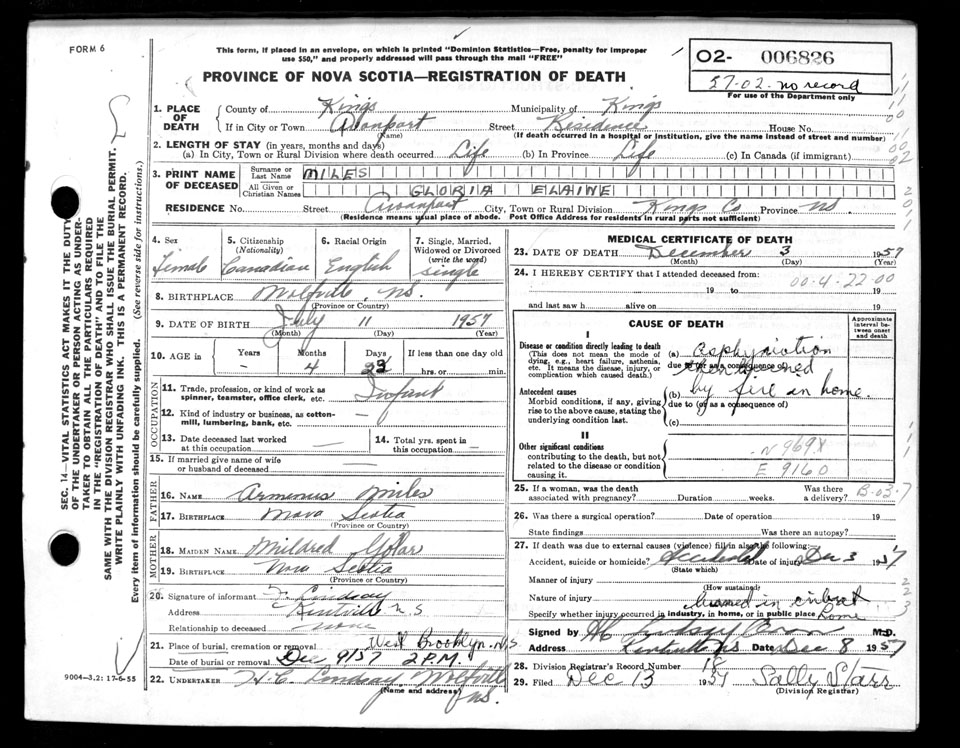 FORM 6
This form, if placed in an envelope, on which is printed "Dominion Statistics—Free, penalty for improper
use $50," and properly addressed will pass through the mail "FREE"
02- 006826
57-02- no record
For use of the Department only
PROVINCE OF NOVA SCOTIA—REGISTRATION OF DEATH
1. PLACE OF DEATH County of Kings Municipality of Kings
If in City or Town Avonport Street Residence House No.
(Name) (If death occurred in a hospital or institution, give the name instead of street and number)
2. LENGTH OF STAY (in years, months and days)
(a) In City, Town or Rural Division where death occurred Life (b) In Province Life (c) In Canada (if immigrant)
3. PRINT NAME OF DECEASED Surname or Last Name MILES
All Given or Christian Names GLORIA ELAINE
RESIDENCE No. Street Avonport City, Town or Rural Division Kings Co Province NS.
(Residence means usual place of abode. Post Office Address for residents in rural parts not sufficient)
4. Sex Female
5. Citizenship (Nationality) Canadian
6. Racial Origin English
7. Single, Married, Widowed or Divorced (write the word) Single
8. BIRTHPLACE Wolfville, NS.
(Province or Country)
9. DATE OF BIRTH July 11 1957
(Month) (Day) (Year)
10. AGE in Years - Months 4 Days 22 If less than one day old hrs. or min.
OCCUPATION
11. Trade, profession, or kind of work as spinner, teamster, office clerk, etc. Infant
12. Kind of industry or business, as cotton-mill, lumbering, bank, etc. —
13. Date deceased last worked at this occupation —
14. Total yrs. spent in this occupation —
15. If married give name of wife or husband of deceased —
FATHER
16. NAME Armenus Miles
17. BIRTHPLACE Nova Scotia
(Province or Country)
MOTHER
18. MAIDEN NAME Mildred
19. BIRTHPLACE Nova Scotia
(Province or Country)
20. Signature of informant Lindsay
Address Kentville N.S
Relationship to deceased none
21. Place of burial, cremation or removal West Brooklyn N.S
Date of burial or removal Dec 9/57 2 P.M.
22. UNDERTAKER H.C. Lindsay Wolfville NS.
(Name and address)
MEDICAL CERTIFICATE OF DEATH
23. DATE OF DEATH December 3 1957
(Month) (Day) (Year)
24. I HEREBY CERTIFY that I attended deceased from:
19 to 19
00-4-22 00
and last saw h alive on 19
CAUSE OF DEATH
Approximate interval between onset and death
I
Disease or condition directly leading to death
(This does not mean the mode of dying, e.g., heart failure, asthenia, etc. It means the disease, injury, or complication which caused death.)
(a) asphyxiation
due to (or as a consequence of)
then burned
Antecedent causes
Morbid conditions, if any, giving rise to the above cause, stating the underlying condition last.
(b) by fire in home.
due to (or as a consequence of)
(c)
II
Other significant conditions
contributing to the death, but not related to the disease or condition causing it.
N 969X
E 9160
25. If a woman, was the death associated with pregnancy? Duration weeks. Was there a delivery? B-03-7
26. Was there a surgical operation? Date of operation 19
State findings Was there an autopsy?
27. If death was due to external causes (violence) fill in also the following:
Accident, suicide or homicide? Accidental Date of injury Dec 3 1957
(State which)
Manner of injury
(How sustained)
Nature of injury burned in
Specify whether injury occurred in industry, in home, or in public place home
Signed by M.D.
Address Kentville NS Date Dec 8 1957
28. Division Registrar's Record Number 18
29. Filed Dec 13 1957 Sally Starr
(Division Registrar)
SEC. 14—VITAL STATISTICS ACT MAKES IT THE DUTY
OF THE UNDERTAKER OR PERSON ACTING AS UNDER-
TAKER TO OBTAIN ALL THE PARTICULARS REQUIRED
IN THE "REGISTRATION OF DEATH" AND TO FILE THE
SAME WITH THE DIVISION REGISTRAR WHO SHALL ISSUE THE BURIAL PERMIT.
WRITE PLAINLY WITH UNFADING INK. THIS IS A PERMANENT RECORD.
Every item of information should be carefully supplied. (See reverse side for instructions.)
9004—3.2: 17-6-55